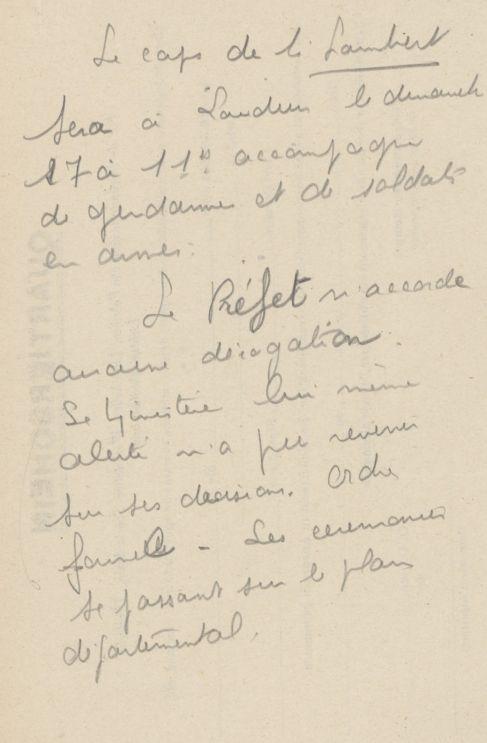 Le corps de Lt Lambert
sera à Laudun le dimanche
17 à 11h accompagné
de gendarmes et de soldats
en armes.
Le Préfet n'accorde
aucune dérogation.
Le Ministère lui même
alerté n'a pu revenir
sur ses décisions. Ordre
formel - Les ceremonies
se passant sur le plan
départemental.